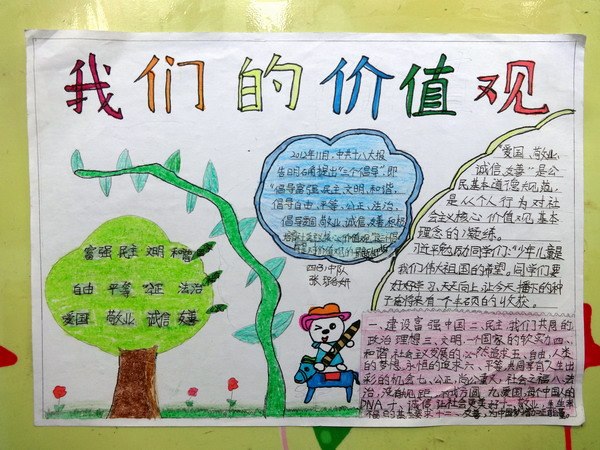 我们的价值观
富强 民主 文明 和谐
自由 平等 公正 法治
爱国 敬业 诚信 友善
2012年11月,中共十八大报
告明确提出"三个倡导",即
"倡导富强、民主、文明、和谐,
倡导自由、平等、公正、法治,
倡导爱国、敬业、诚信、友善,积极
四(3)中队
"爱国、敬业、
诚信、友善"是公
民基本道德规范,
是从个人行为对社
会主义核心价值观基本
理念的凝练。
习近平勉励同学们:"少年儿童是
我们伟大祖国的希望。同学们要
好好学习,天天向上,让今天播下的种
子迎来有一个丰硕的收获。
一、建设富强中国二、民主:我们共同的
政治理想三、文明,一个国家的软实力四、
和谐:社会主义发展的必然追求五、自由,人类
的梦想,永恒的追求六、平等,共同享有人生出
彩的机会七、公正,尚公重义,社会之福八、法
治,没有规矩,不成方圆 九、爱国,每个中国人的
DNA 十、诚信,让社会更美好十一、敬业,